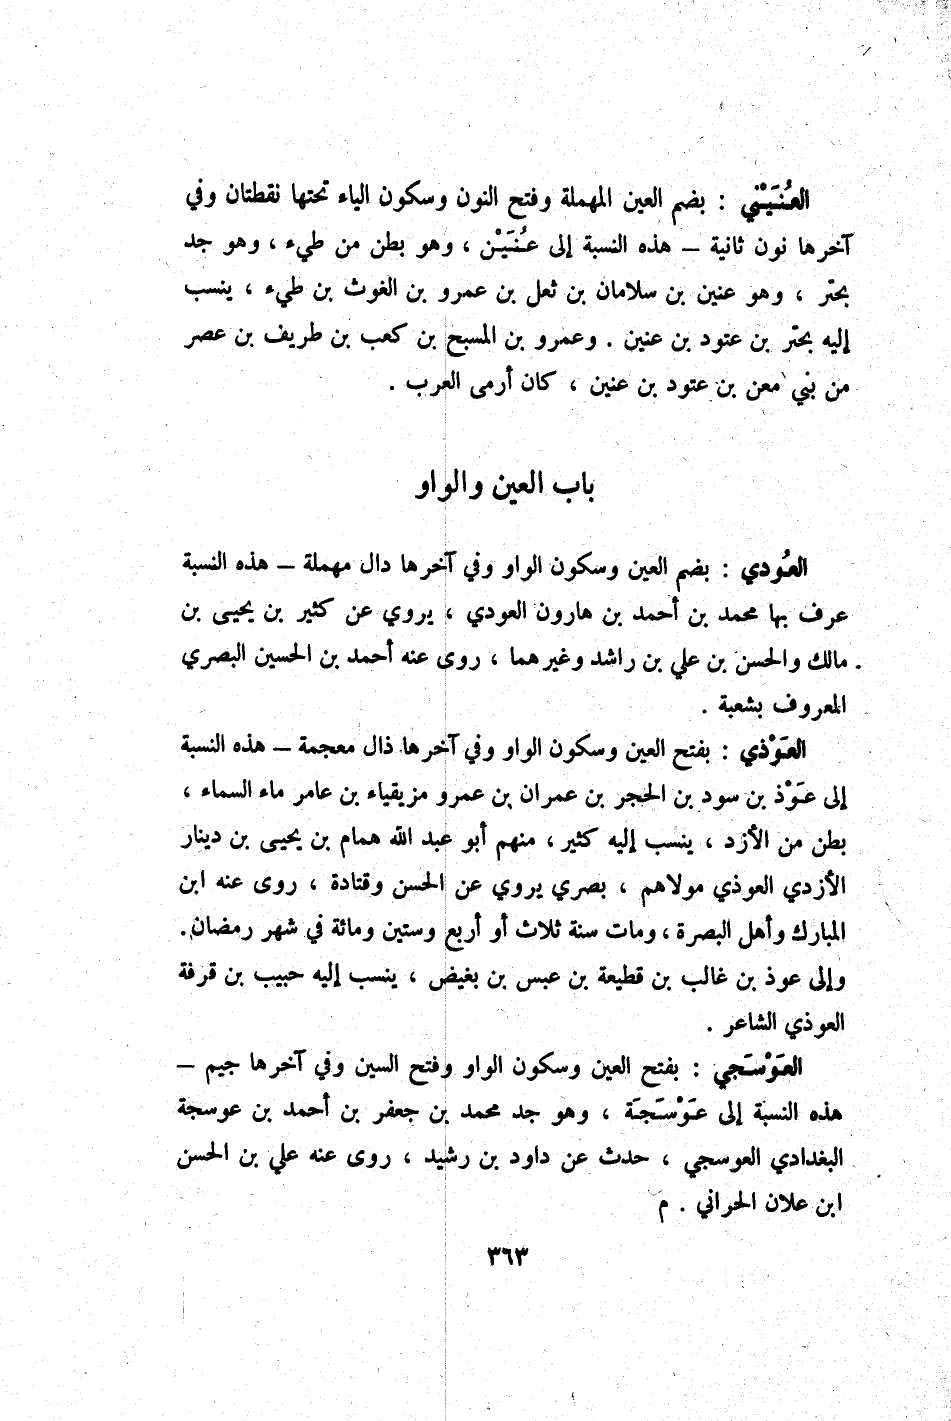 العُنَيْني : بضم العين المهملة وفتح النون وسكون الياء تحتها نقطتان وفي
آخرها نون ثانية – هذه النسبة إلى عُنَيْن ، وهو بطن من طيء ، وهو جد
بحتر ، وهو عنين بن سلامان بن ثعل بن عمرو بن الغوث بن طيء ، ينسب
إليه بحتر بن عتود بن عنين . وعمرو بن المسبح بن كعب بن طريف بن عصر
من بني معن بن عتود بن عنين ، كان أرمى العرب .
باب العين والواو
العُودي : بضم العين وسكون الواو وفي آخرها دال مهملة – هذه النسبة
عرف بها محمد بن أحمد بن هارون العودي ، يروي عن كثير بن يحيى بن
مالك والحسن بن علي بن راشد وغيرهما ، روى عنه أحمد بن الحسين البصري
المعروف بشعبة .
العَوْذي : بفتح العين وسكون الواو وفي آخرها ذال معجمة – هذه النسبة
إلى عَوْذ بن سود بن الحجر بن عمران بن عمرو مزيقياء بن عامر ماء السماء ،
بطن من الأزد ، ينسب إليه كثير ، منهم أبو عبد الله همام بن يحيى بن دينار
الأزدي العوذي مولاهم ، بصري يروي عن الحسن وقتادة ، روى عنه ابن
المبارك وأهل البصرة ، ومات سنة ثلاث أو أربع وستين ومائة في شهر رمضان .
وإلى عوذ بن غالب بن قطيعة بن عبس بن بغيض ، ينسب إليه حبيب بن قرفة
العوذي الشاعر .
العَوْسَجي : بفتح العين وسكون الواو وفتح السين وفي آخرها جيم –
هذه النسبة إلى عَوْسَجَة ، وهو جد محمد بن جعفر بن أحمد بن عوسجة
البغدادي العوسجي ، حدث عن داود بن رشيد ، روى عنه علي بن الحسن
ابن علان الحراني . م
٣٦٣